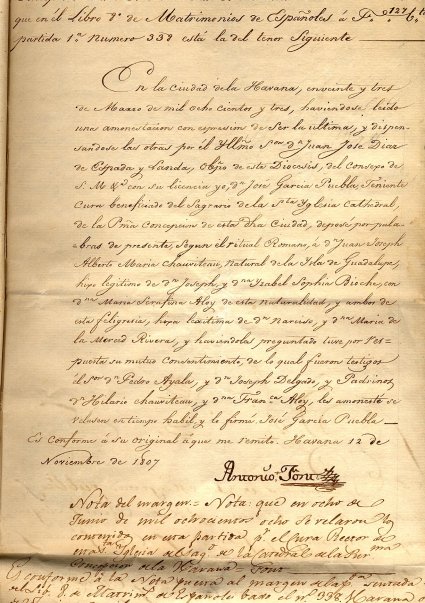 que en él Libro 8º de Matrimonios de Españoles á F.s 127 bta
partida 1ª Numero 338 está la del tenor Siguiente
En la Ciudad de la Havana, en veinte y tres
de Marzo de mil ocho cientos y tres, haviendose leido
una amonestacion con expresion de ser la ultima, y dispen-
sandose las otras por él Yllmo Sor Dn Juan José Diaz
de Espada y Landa, Obpo de esta Diocesis, del Consexo de
S. M &ª con su licencia yo, Dn José Garcia Puebla, Teniente
Cura beneficiado del Sagrario de la Sta Yglesia Cathedral,
de la Pma Concepcion de esta dha Ciudad, desposé por pala-
abras de presente, segun el ritual Romano, á Dn Juan Joseph
Alberto Maria Chauviteau, natural de la Isla de Guadalupe,
hijo legitimo de Dn Joseph, y Dna Izabel Sophia Bioche, con
Dna Maria Serafina Aloy de esta naturalidad, y ambos de
esta feligresia, hija legitima de Dn Narciso, y Dna Maria de
la Merced Rivera, y haviendola preguntado tuve por res-
puesta su mutuo Consentimiento, de lo qual fueron testigos
él Sor Dn Pedro Ayala, y Dn Joseph Delgado, y Padrinos
Dn Hilario Chauviteau, y Dna Franca Aloy, les amonesté se
velasen en tiempo habil, y lo firmé José Garcia Puebla
Es Conforme á su original á que me remito. Havana 12 de
Noviembre de 1807
Antonio
Nota del margen = Nota: que en ocho de
Junio de mil ochocientos ocho se velaron los
contenidos en esta partida p. el cura Rector de
esta Iglesia del Sagº de la Catedral de la Purma
Concepcion de la Havana
Es conforme á la Nota puesta al margen de la pda sentada
de Matrimos de Españoles bajo el nº 338 Havana